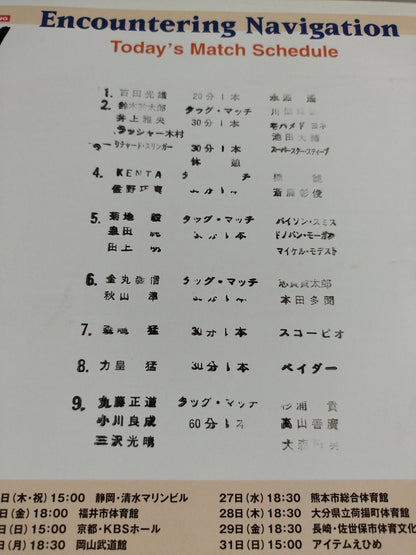 Encountering Navigation
Today's Match Schedule
1. 百田光雄 20分1本 永源 遙
2. 鈴木 太郎 タッグ・マッチ 川畑
井上雅央 30分1本 モハメド ヨネ
ラッシャー木村 池田大輔
リチャード・スリンガー 30分1本 スーパースター・スティーブ
休憩
4. KENTA タ チ 橋 誠
佐野巧真 分1本 斎藤彰俊
5. 菊地 毅 タッグ・マッチ バイソン・スミス
泉田 純 分1本 ドノバン・モーガン
田上 明 マイケル・モデスト
6. 金丸義信 タッグ・マッチ 志賀賢太郎
秋山 準 分1本 本田多聞
7. 森嶋 猛 30分1本 スコーピオ
8. 力皇 猛 30分1本 ベイダー
9. 丸藤正道 タッグ・マッチ 杉浦 貴
小川良成 60分1本 高山善廣
三沢光晴 大森隆男
日(木・祝) 15:00 静岡・清水マリンビル 27日(水) 18:30 熊本市総合体育館
日(金) 18:00 福井市体育館 28日(木) 18:30 大分県立荷揚町体育館
日(日) 15:00 京都・KBSホール 29日(金) 18:30 長崎・佐世保市体育文化
日(月) 18:30 岡山武道館 31日(日) 15:00 アイテムえひめ